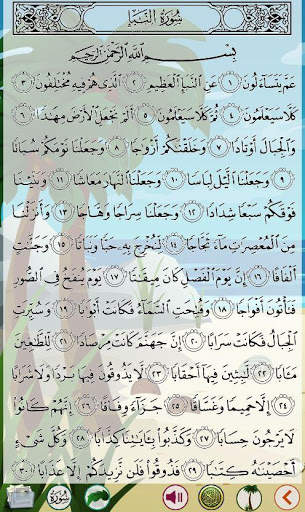 سُورَةُ النَّبَإِ
بِسْمِ اللَّهِ الرَّحْمَٰنِ الرَّحِيمِ
عَمَّ يَتَسَاءَلُونَ ١ عَنِ النَّبَإِ الْعَظِيمِ ٢ الَّذِي هُمْ فِيهِ مُخْتَلِفُونَ ٣
كَلَّا سَيَعْلَمُونَ ٤ ثُمَّ كَلَّا سَيَعْلَمُونَ ٥ أَلَمْ نَجْعَلِ الْأَرْضَ مِهَادًا ٦
وَالْجِبَالَ أَوْتَادًا ٧ وَخَلَقْنَاكُمْ أَزْوَاجًا ٨ وَجَعَلْنَا نَوْمَكُمْ سُبَاتًا
٩ وَجَعَلْنَا اللَّيْلَ لِبَاسًا ١٠ وَجَعَلْنَا النَّهَارَ مَعَاشًا ١١ وَبَنَيْنَا
فَوْقَكُمْ سَبْعًا شِدَادًا ١٢ وَجَعَلْنَا سِرَاجًا وَهَّاجًا ١٣ وَأَنْزَلْنَا
مِنَ الْمُعْصِرَاتِ مَاءً ثَجَّاجًا ١٤ لِنُخْرِجَ بِهِ حَبًّا وَنَبَاتًا ١٥ وَجَنَّاتٍ
أَلْفَافًا ١٦ إِنَّ يَوْمَ الْفَصْلِ كَانَ مِيقَاتًا ١٧ يَوْمَ يُنْفَخُ فِي الصُّورِ
فَتَأْتُونَ أَفْوَاجًا ١٨ وَفُتِحَتِ السَّمَاءُ فَكَانَتْ أَبْوَابًا ١٩ وَسُيِّرَتِ
الْجِبَالُ فَكَانَتْ سَرَابًا ٢٠ إِنَّ جَهَنَّمَ كَانَتْ مِرْصَادًا ٢١ لِلطَّاغِينَ
مَآبًا ٢٢ لَابِثِينَ فِيهَا أَحْقَابًا ٢٣ لَا يَذُوقُونَ فِيهَا بَرْدًا وَلَا شَرَابًا
٢٤ إِلَّا حَمِيمًا وَغَسَّاقًا ٢٥ جَزَاءً وِفَاقًا ٢٦ إِنَّهُمْ كَانُوا
لَا يَرْجُونَ حِسَابًا ٢٧ وَكَذَّبُوا بِآيَاتِنَا كِذَّابًا ٢٨ وَكُلَّ شَيْءٍ
أَحْصَيْنَاهُ كِتَابًا ٢٩ فَذُوقُوا فَلَنْ نَزِيدَكُمْ إِلَّا عَذَابًا ٣٠
سورة